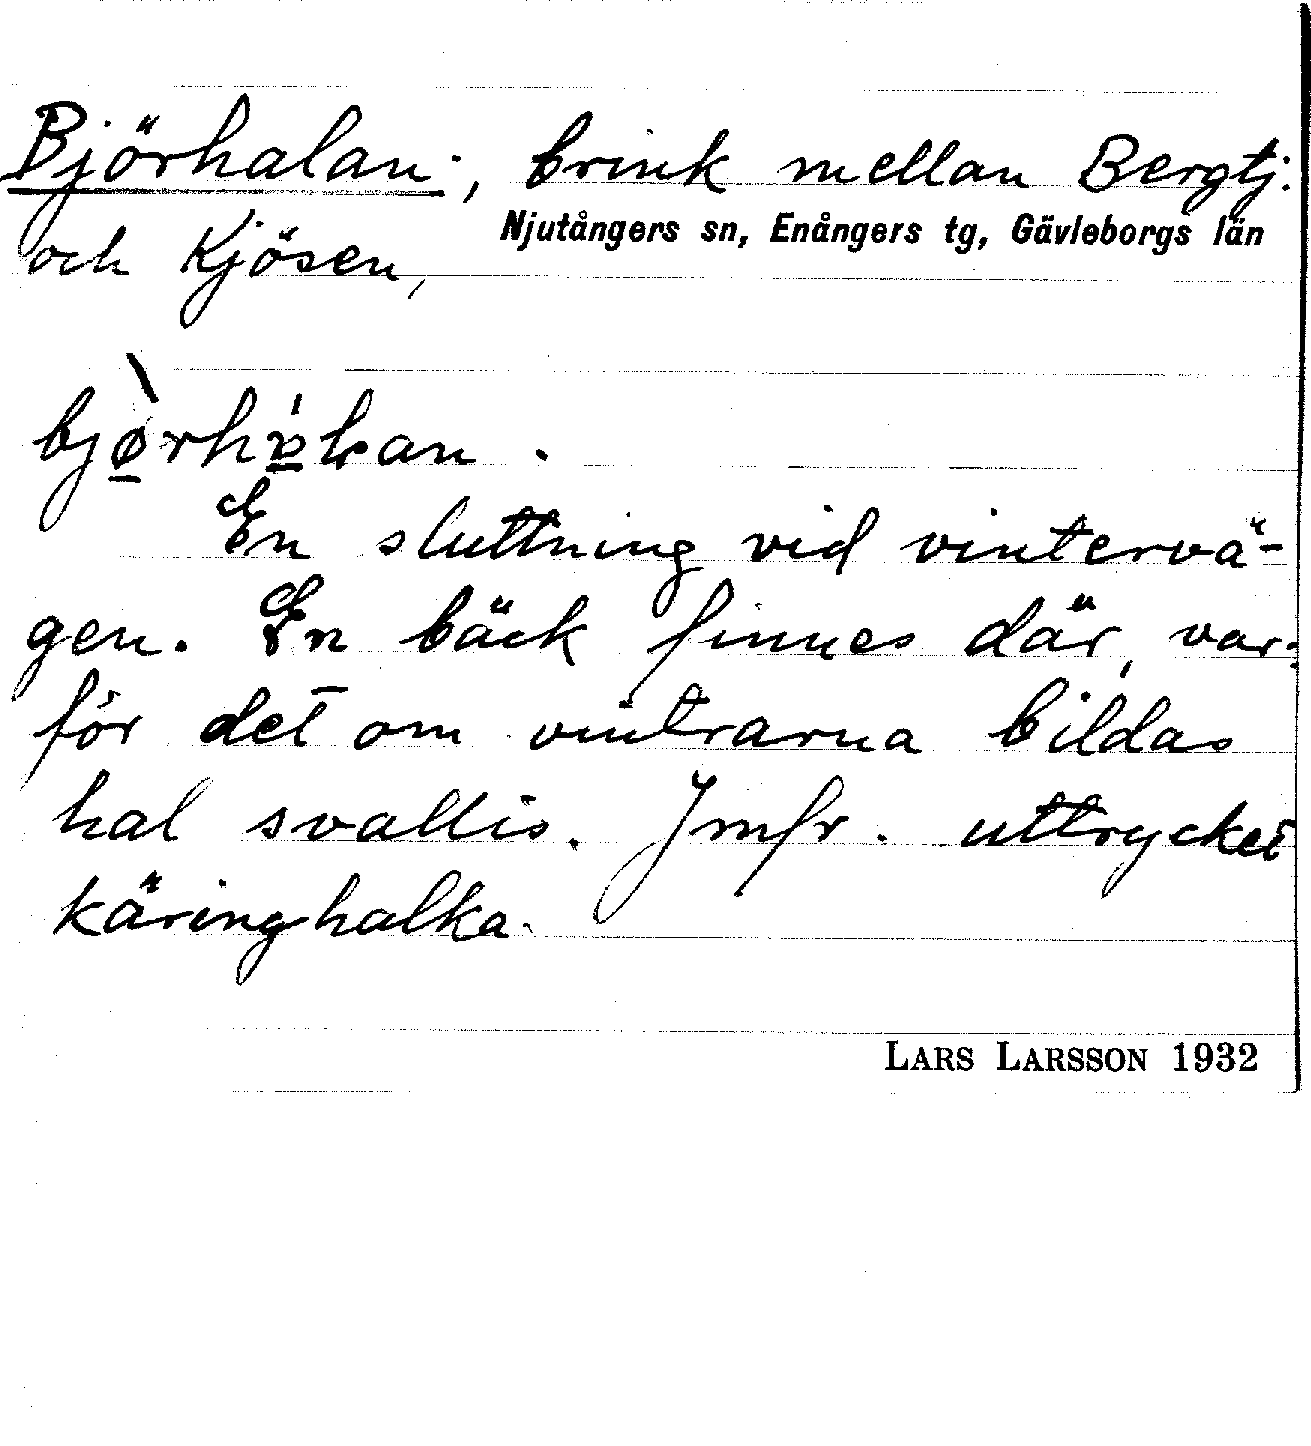 Björhalan, brink mellan Bergtj.
Njutångers sn, Enångers tg, Gävleborgs län
och Kjösen,
En sluttning vid vintervä-
gen. En bäck finnes där, var-
för det om vintrarna bildas
hal svallis. Jmfr. uttrycket
käringhalka.
LARS LARSSON 1932